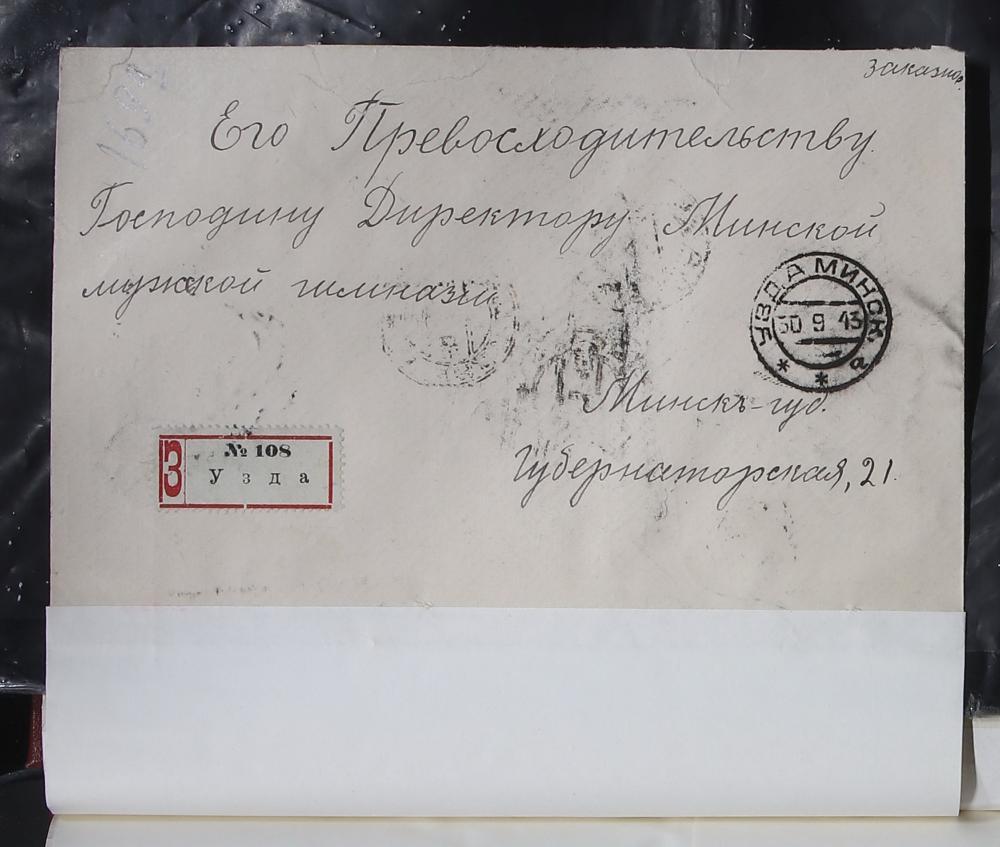 Заказное.
Его Превосходительству
Господину Директору Минской
мужской гимназіи
УЗДА МИНСК.
30 9 13
* * а
Минскъ-губ.
Губернаторская, 21.
З
№ 108
Узда